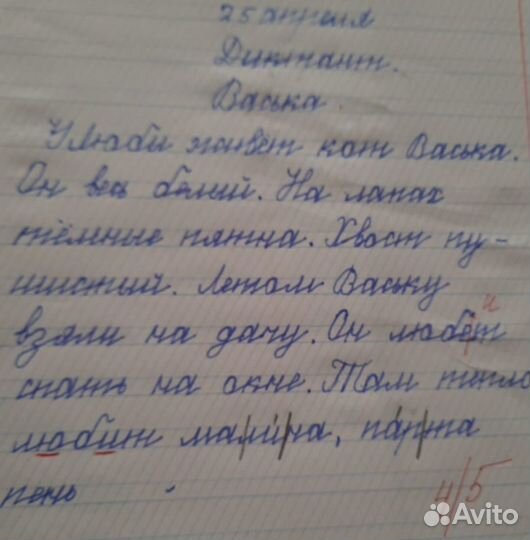 25 апреля
Диктант.
Васька.
У Любы живёт кот Васька.
Он весь белый. На лапах
тёмные пятна. Хвост пу-
шистый. Летом Ваську
и
взяли на дачу. Он любет
спать на окне. Там тепло
любит марина, парта
печь
4/5
Avito